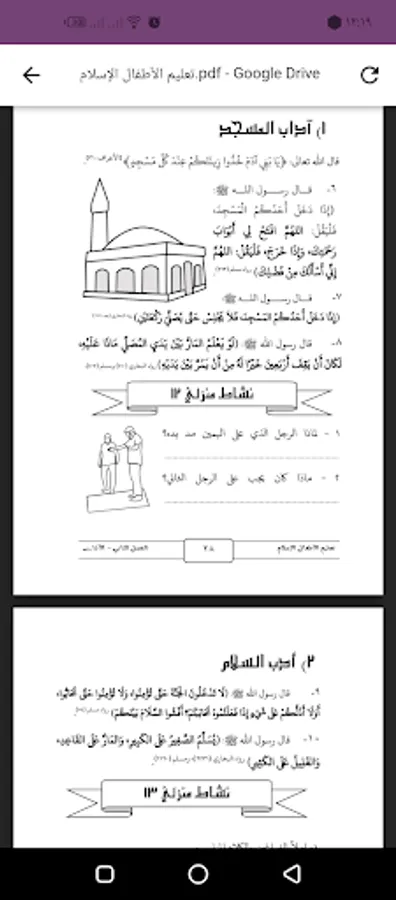 ١٢:١٩
تعليم الأطفال الإسلام.pdf - Google Drive
١) آداب المسجد
قال الله تعالى: ﴿يَا بَنِي آدَمَ خُذُوا زِينَتَكُمْ عِنْدَ كُلِّ مَسْجِدٍ﴾
٦- قال رسول الله ﷺ:
(إِذَا دَخَلَ أَحَدُكُمُ الْمَسْجِدَ،
فَلْيَقُلْ: اللهُمَّ افْتَحْ لِي أَبْوَابَ
رَحْمَتِكَ، وَإِذَا خَرَجَ، فَلْيَقُلْ: اللهُمَّ
إِنِّي أَسْأَلُكَ مِنْ فَضْلِكَ)
٧- قال رسول الله ﷺ:
(إِذَا دَخَلَ أَحَدُكُمُ الْمَسْجِدَ، فَلَا يَجْلِسْ حَتَّى يُصَلِّيَ رَكْعَتَيْنِ)
٨- قال رسول الله ﷺ: (لَوْ يَعْلَمُ المَارُّ بَيْنَ يَدَيِ المُصَلِّي مَاذَا عَلَيْهِ،
لَكَانَ أَنْ يَقِفَ أَرْبَعِينَ خَيْرًا لَهُ مِنْ أَنْ يَمُرَّ بَيْنَ يَدَيْهِ)
نشاط منزلي ١٢
١ - لماذا الرجل الذي على اليمين مد يده؟
٢ - ماذا كان يجب على الرجل الثاني؟
تعليم الأطفال الإسلام
٢٨
الفصل الثاني - الآداب
٢) آداب السلام
٩- قال رسول الله ﷺ: (لَا تَدْخُلُونَ الْجَنَّةَ حَتَّى تُؤْمِنُوا، وَلَا تُؤْمِنُوا حَتَّى تَحَابُّوا،
أَوَلَا أَدُلُّكُمْ عَلَى شَيْءٍ إِذَا فَعَلْتُمُوهُ تَحَابَبْتُمْ؟ أَفْشُوا السَّلَامَ بَيْنَكُمْ)
١٠- قال رسول الله ﷺ: (يُسَلِّمُ الصَّغِيرُ عَلَى الكَبِيرِ، وَالمَارُّ عَلَى القَاعِدِ،
وَالقَلِيلُ عَلَى الكَثِيرِ)
نشاط منزلي ١٣